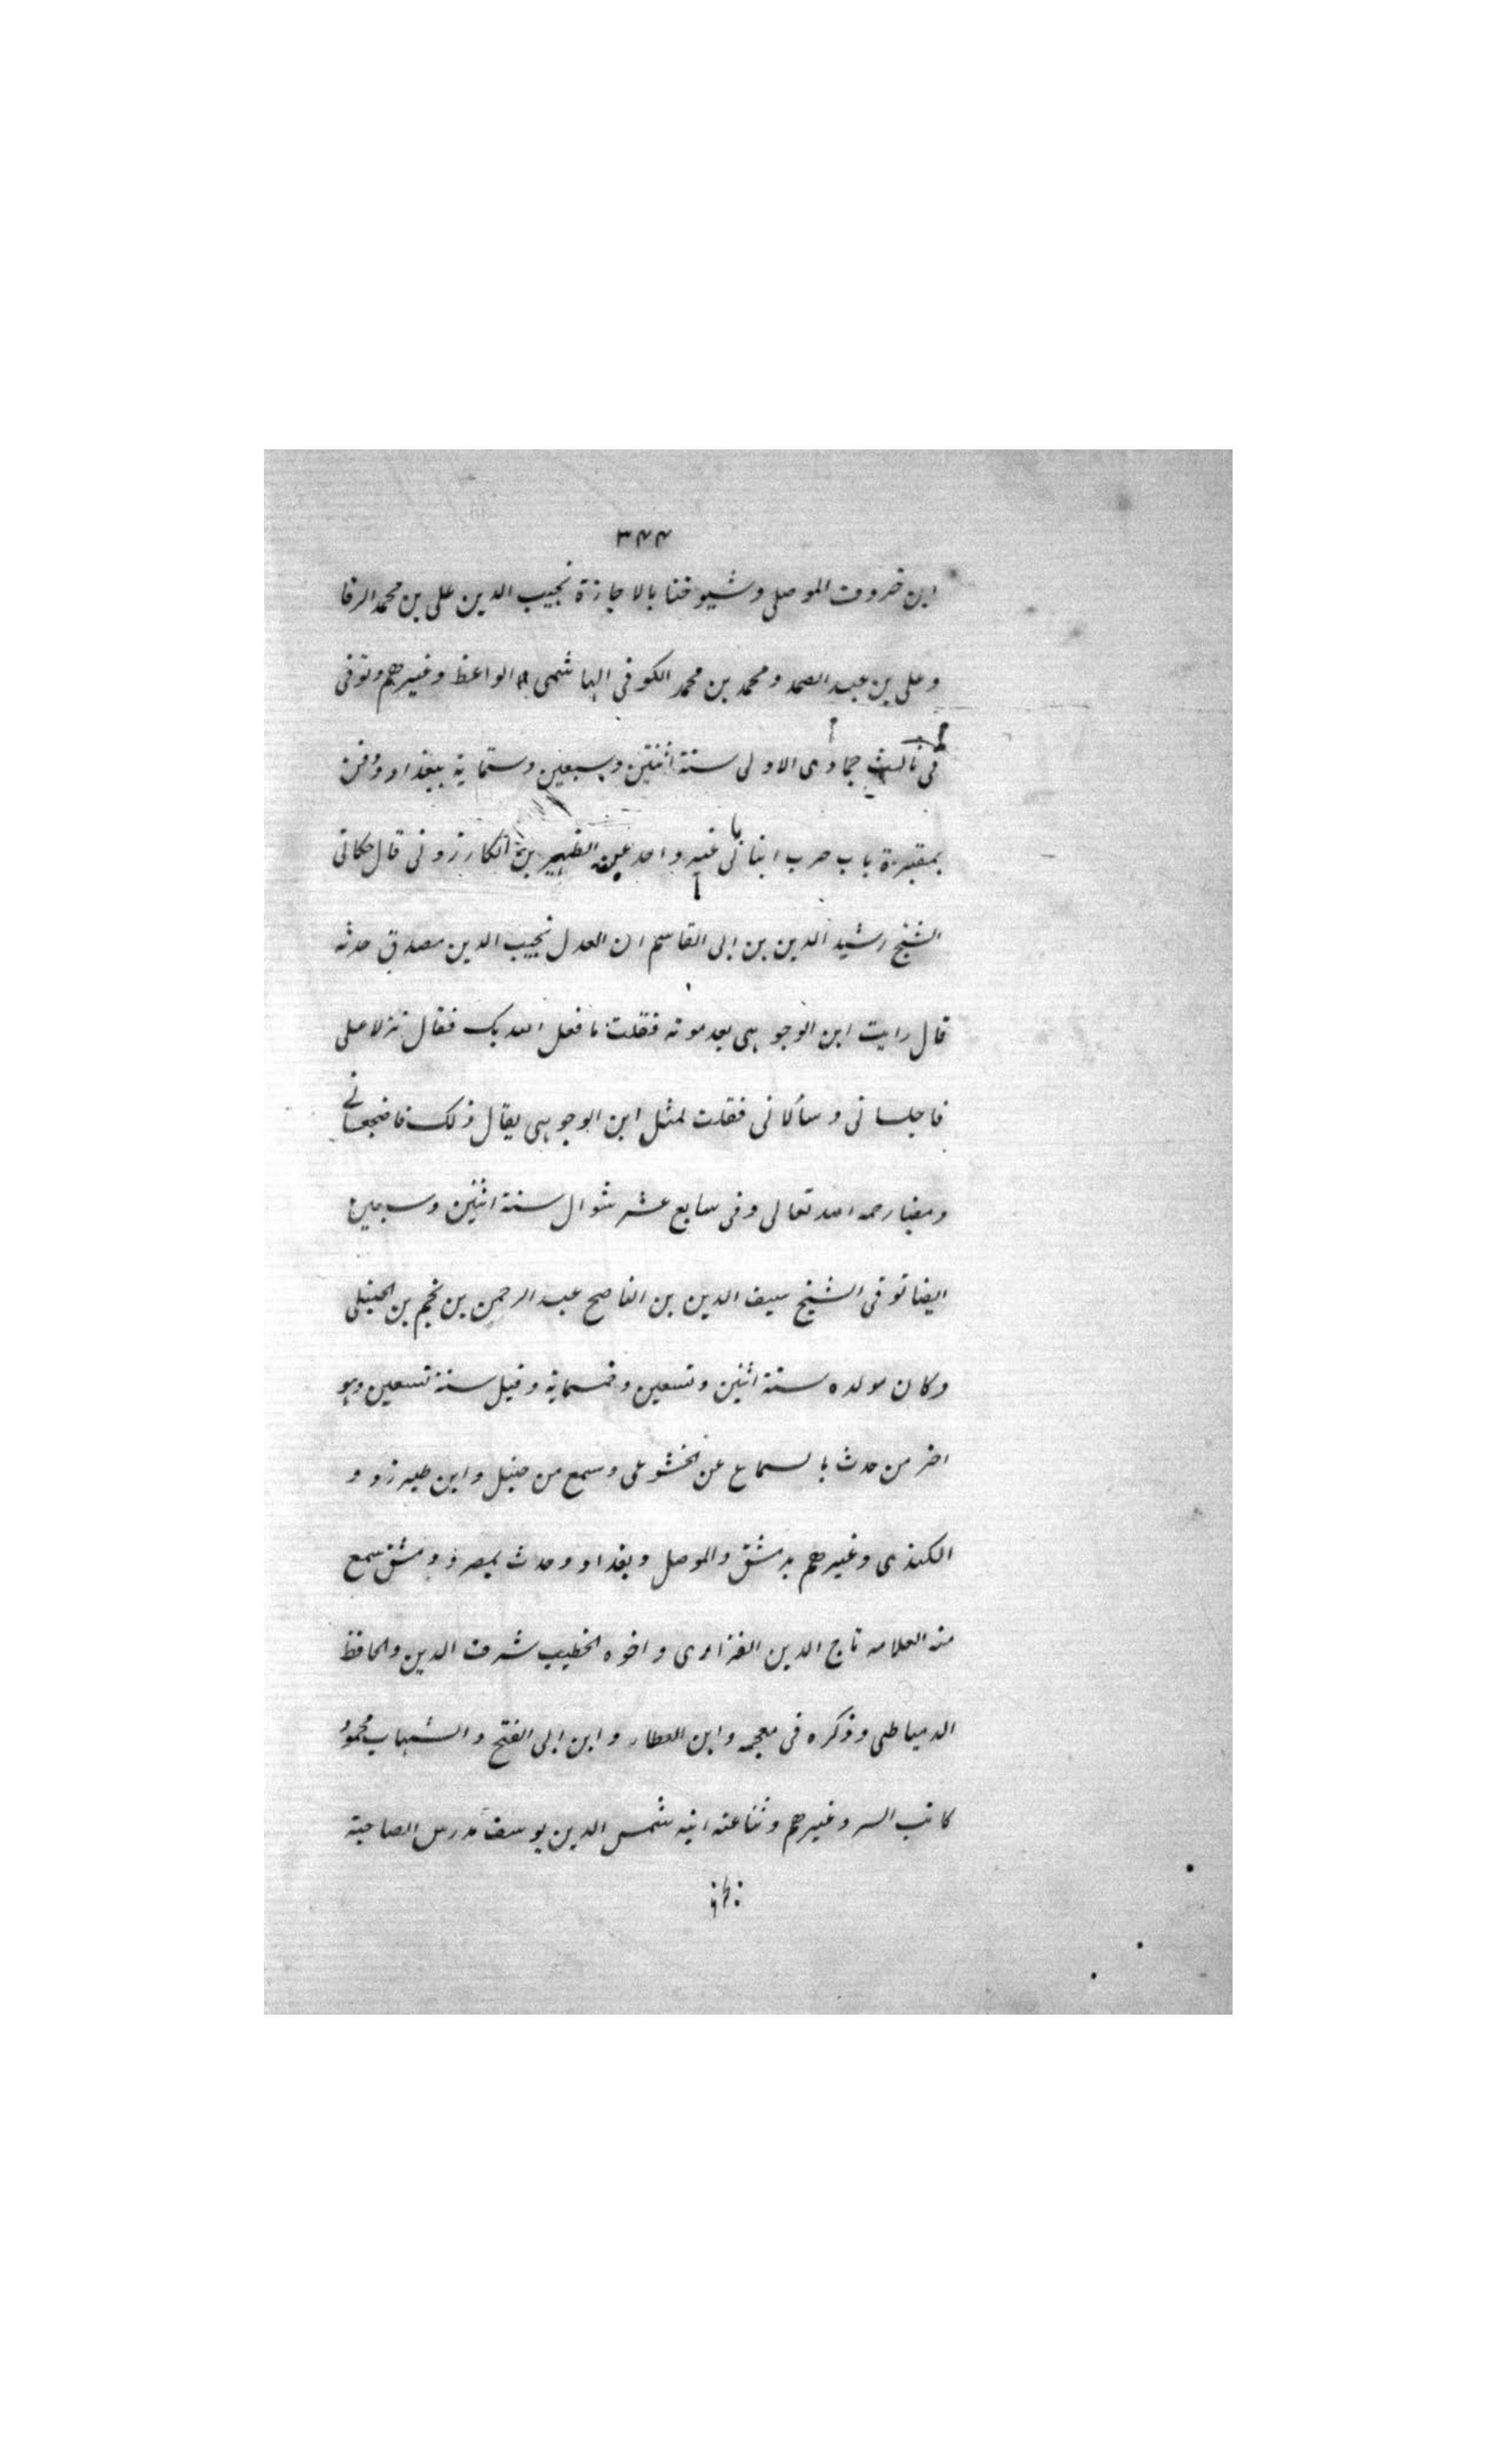 ٣٤٤
ابن خروف الموصلى وشيوخنا بالاجازة نجيب الدين على بن محمد الرفا
وعلى بن عبد الصمد ومحمد بن محمد الكوفى الهاشمى الواعظ وغيرهم وتوفى
فى ثالث جمادى الاولى سنة اثنتين وسبعين وستماية ببغداد ودفن
بمقبرة باب حرب انبانى غير واحد عن الظهير بن الكارزونى قال حكانى
الشيخ رشيد الدين بن ابى القاسم ان العدل نجيب الدين مصدق حدثه
قال رايت ابن الوجوهى بعد موته فقلت ما فعل الله بك فقال نزلا على
فاجلسانى وسألانى فقلت لمثل ابن الوجوهى يقال ذلك فاضجعانى
ومضيا رحمه الله تعالى وفى سابع عشر شوال سنة اثنين وسبعين
ايضا توفى الشيخ سيف الدين بن الناصح عبد الرحمن بن نجم بن الحنبلى
وكان مولده سنة اثنين وتسعين وخمسماية وقيل سنة تسعين وهو
اخر من حدث بالسماع عن الخشوعى وسمع من حنبل وابن طبرزد و
الكندى وغيرهم بدمشق والموصل وبغداد وحدث بمصر ودمشق سمع
منه العلامه تاج الدين الفزارى واخوه الخطيب شرف الدين والحافظ
الدمياطى وذكره فى معجمه وابن العطار وابن ابى الفتح والشهاب محمود
كاتب السر وغيرهم وثنا عنه ابنه شمس الدين يوسف مدرس الصاحبة